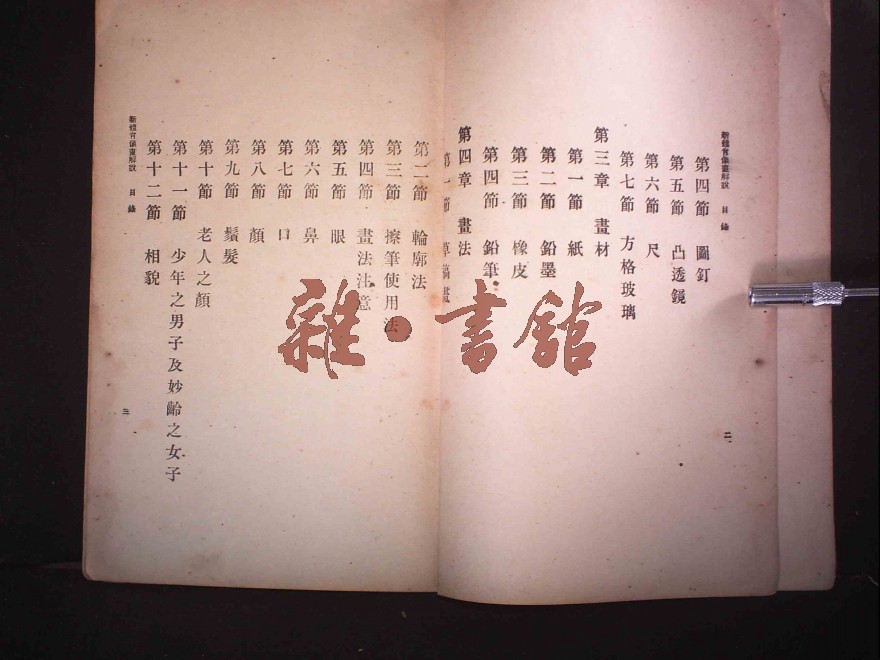 新體肖像畫解說 目錄
第四節 圖釘
第五節 凸透鏡
第六節 尺
第七節 方格玻璃
第三章 畫材
第一節 紙
第二節 鉛墨
第三節 橡皮
第四節 鉛筆
第四章 畫法
第一節 草稿畫
二
第二節 輪廓法
第三節 擦筆使用法
第四節 畫法注意
第五節 眼
第六節 鼻
第七節 口
第八節 顏
第九節 鬚髮
第十節 老人之顏
第十一節 少年之男子及妙齡之女子
第十二節 相貌
新體肖像畫解說 目錄
三
雜·書館